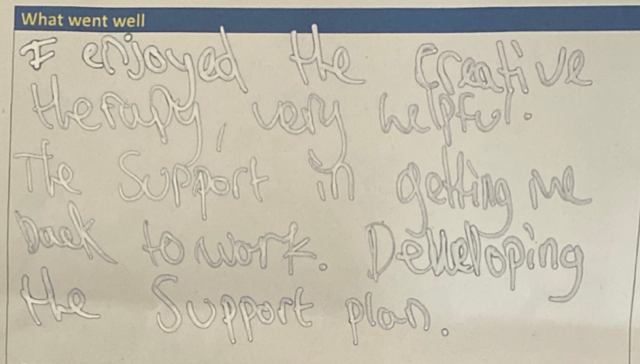 What went well
I enjoyed the creative
therapy, very helpful.
The Support in getting me
back to work. Developing
the Support plan.